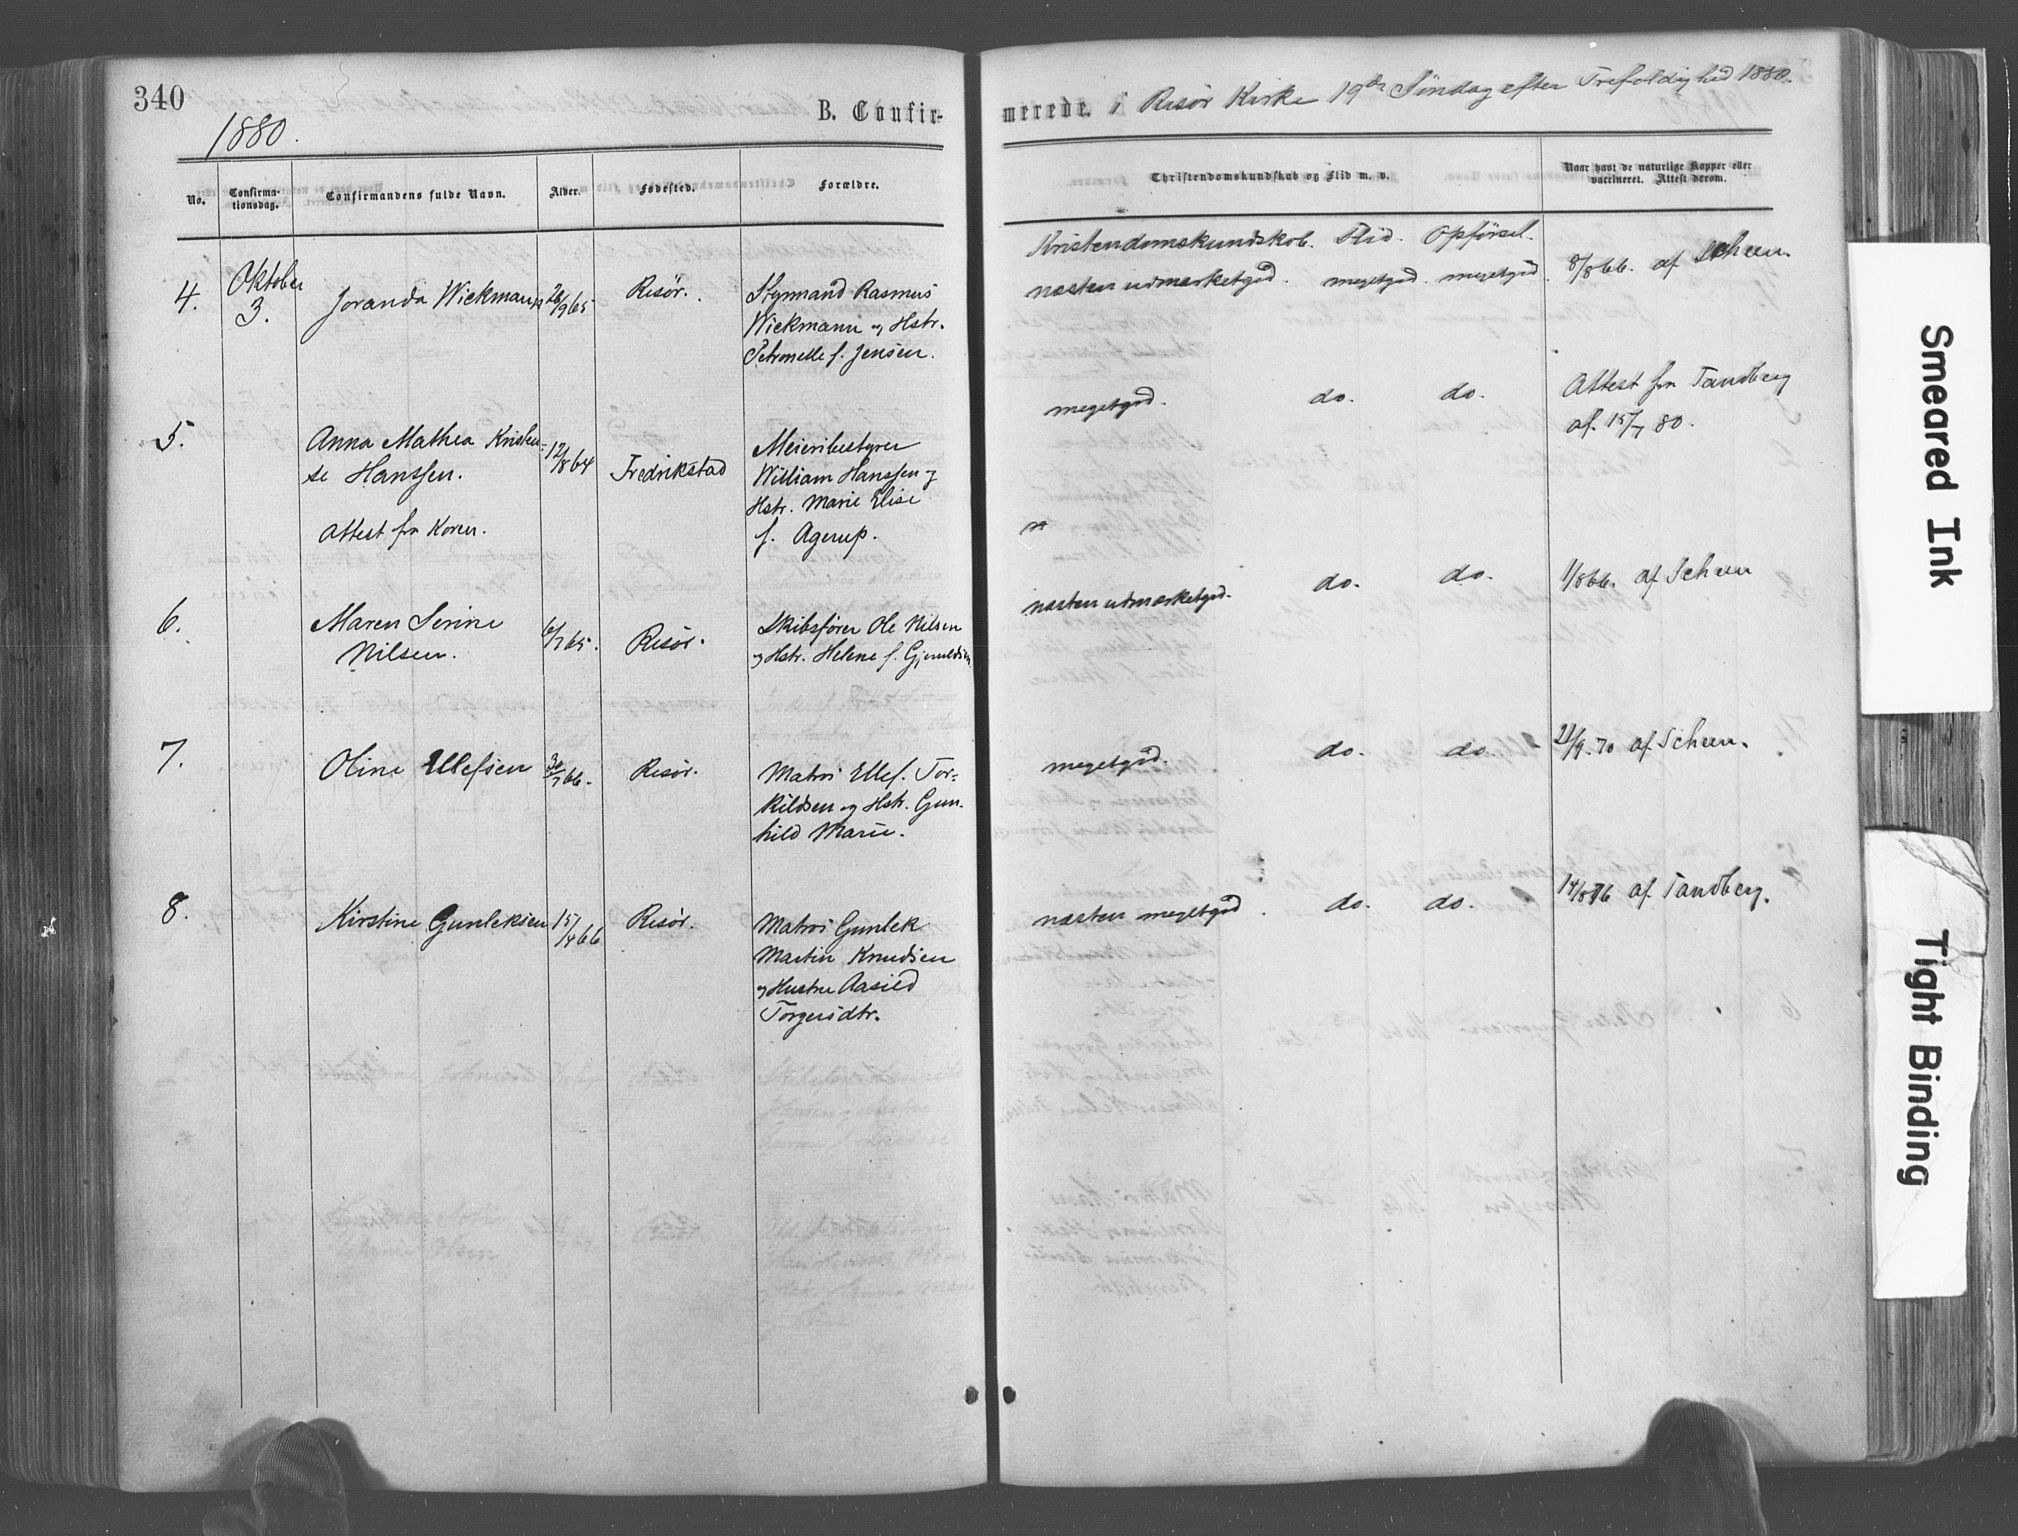 340
1880.
B. Confir-
merede. i Risør Kirke 19de Søndag efter Trefoldighed 1880.
No.
Confirma-
tionsdag.
Confirmandens fulde Navn.
Alder.
Fødested.
Forældre.
Christendomskundskab og Flid m. v.
Naar havt de naturlige Kopper eller
vaccineret. Attest derom.
Kristendomskundskab. Flid. Opførsel.
4.
Oktober
3.
Joranda Wickmann
26/9 65
Risør.
Styrmand Rasmus
Wickmann og Hstr.
Petronelle f. Jensen.
næsten udmærketgod. megetgod. megetgod.
8/8 66. af Scheen.
5.
Anna Mathea Kristen-
se Hanssen.
Attest fra Koren.
12/8 64
Fredrikstad
Meieribestyrer
William Hanssen og
Hstr. Marie Elise
f. Agerup.
megetgod. do. do.
Attest fra Tandberg
af. 15/7 80.
n
6.
Maren Serine
Nilsen.
6/7 65.
Risør.
Skibsfører Ole Nilsen
og Hstr. Helene f. Gjeruldsen
næsten udmærketgod. do. do.
1/8 66. af Scheen
7.
Oline Ellefsen
30/7 66.
Risør.
Matros Ellef. Tor-
kildsen og Hstr. Gun-
hild Marie.
megetgod. do. do.
21/9. 70 af Scheen.
8.
Kirstine Gunleksen
15/4 66
Risør.
Matros Gunlek
Martin Knudsen
og Hustru Aasild
Torgersdtr.
næsten megetgod. do. do.
14/8 76 af Tandberg.
Smeared Ink
Tight Binding